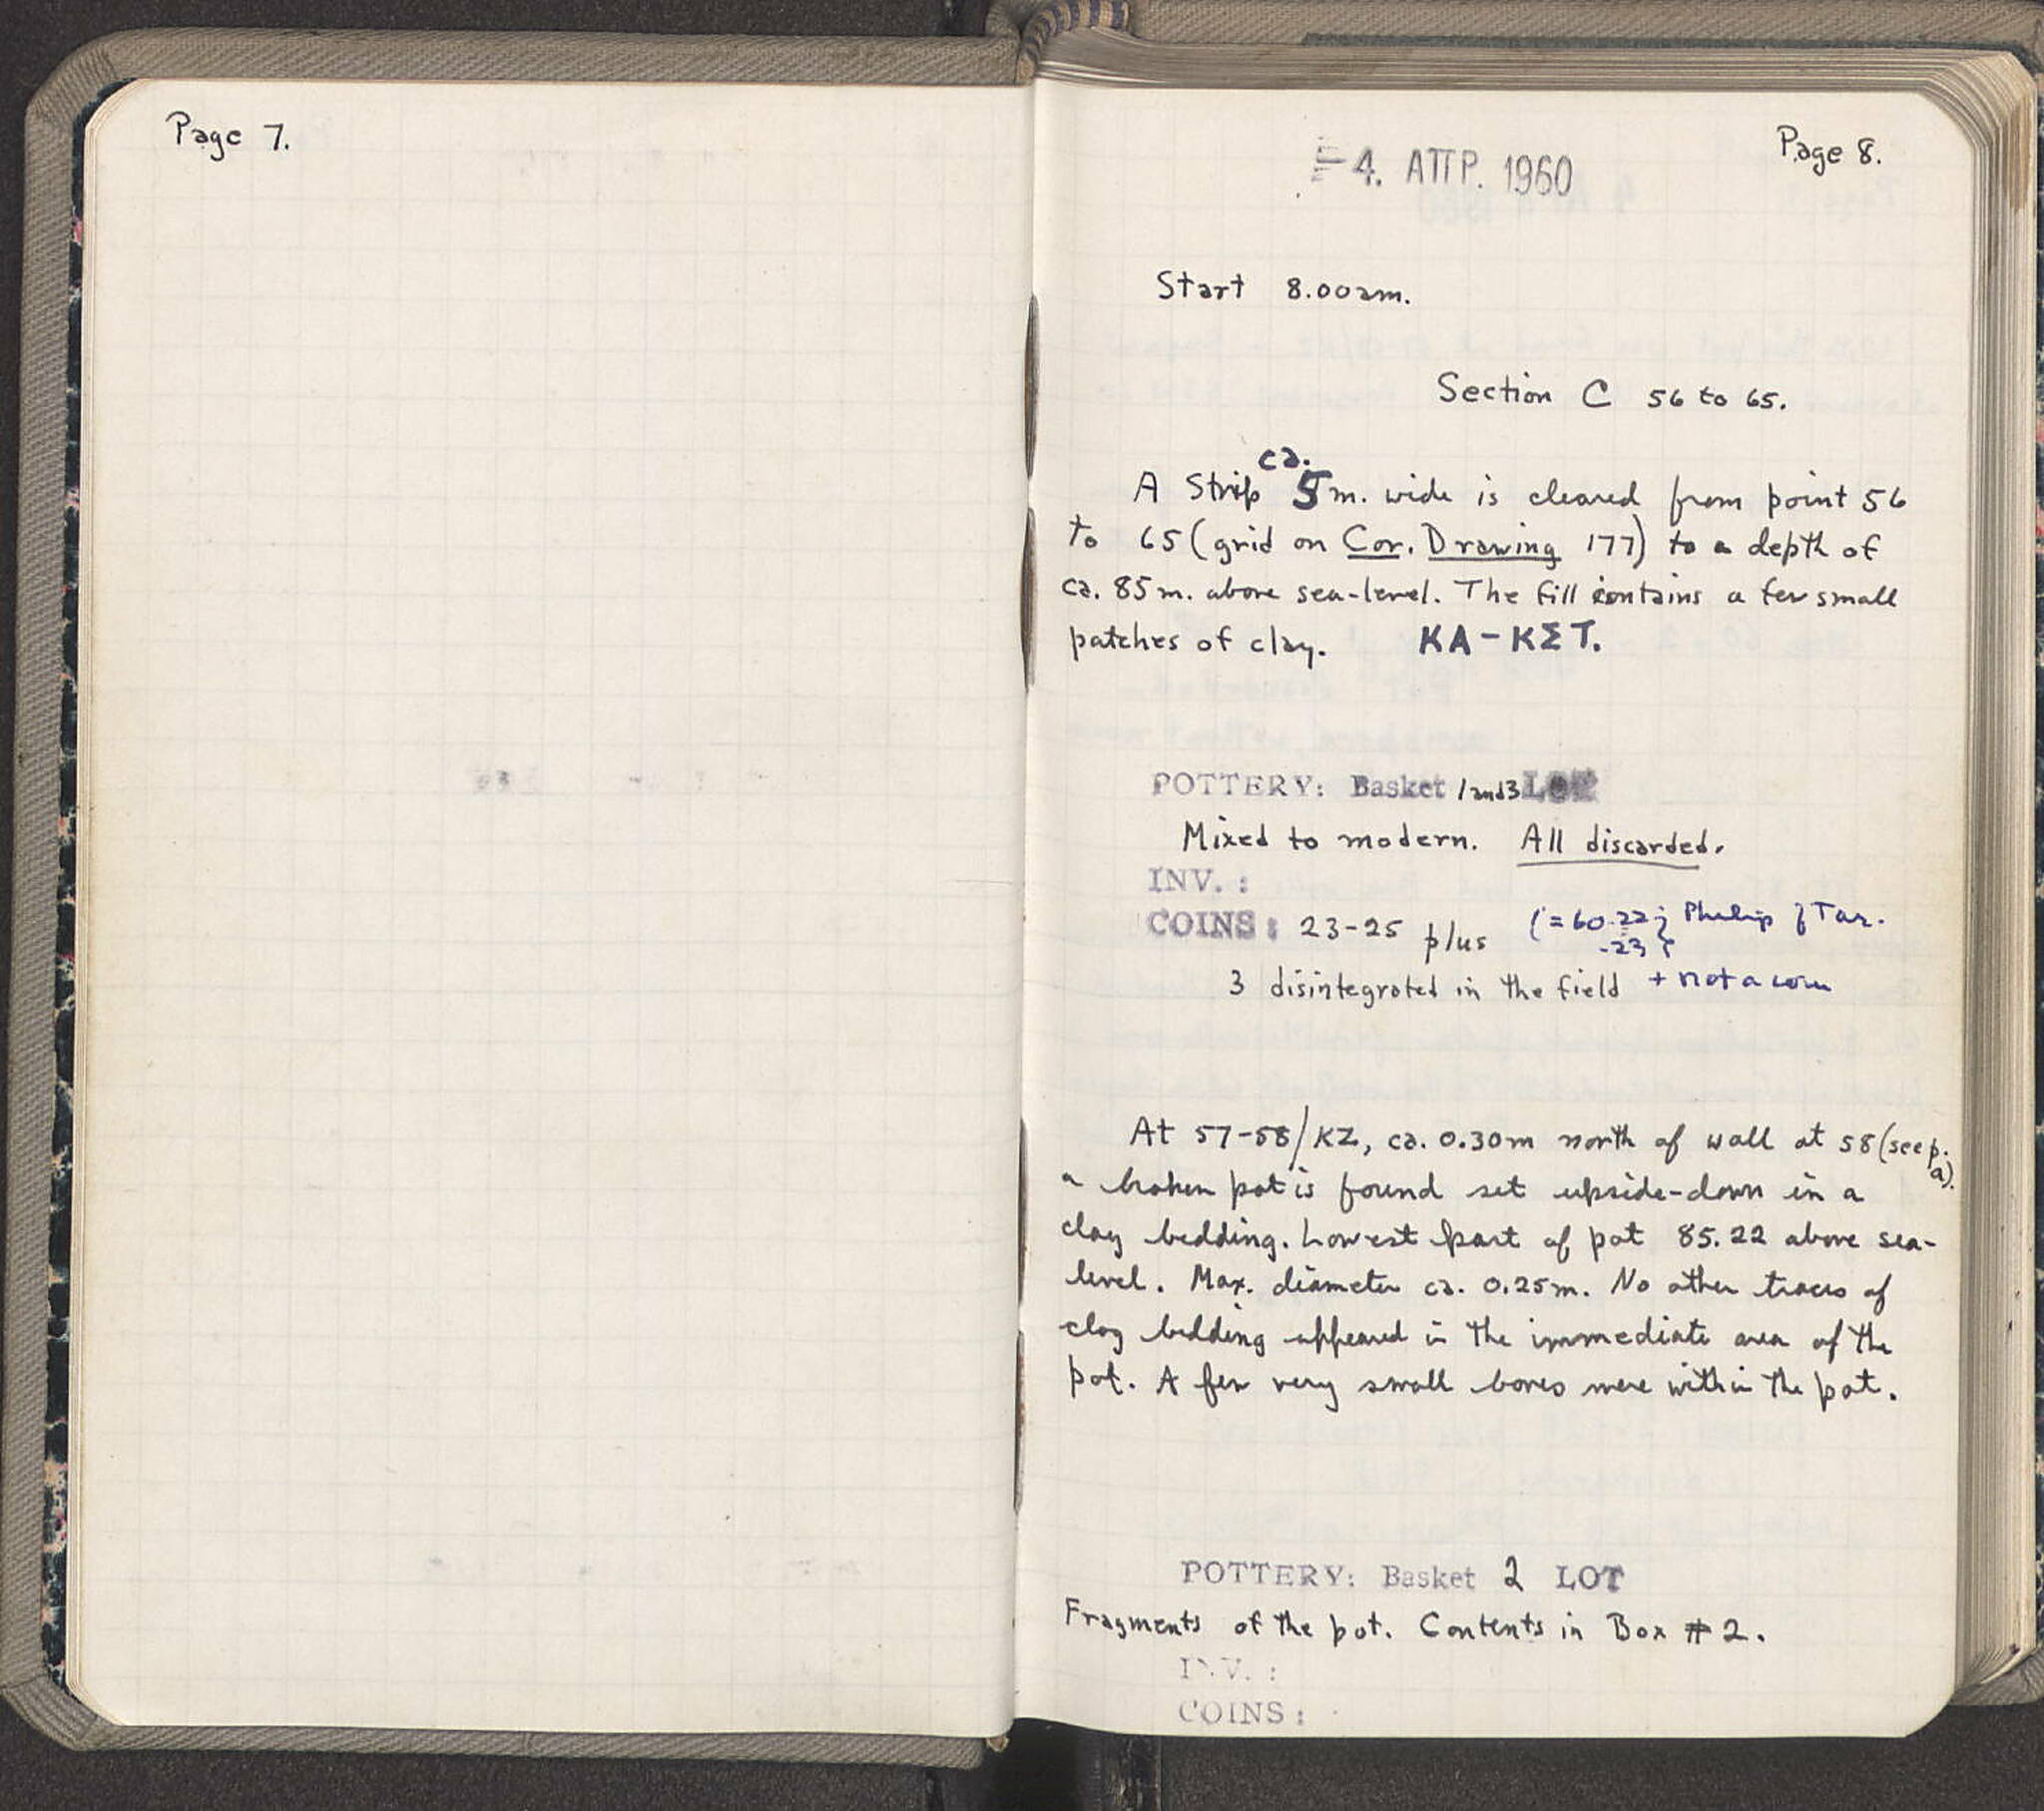 Page 7.
Page 8.
4. ΑΠΡ. 1960
Start 8.00am.
Section C 56 to 65.
A Strip ca. 5m. wide is cleared from point 56
to 65 (grid on Cor. Drawing 177) to a depth of
ca. 85m. above sea-level. The fill contains a few small
patches of clay. KA-KΣT.
POTTERY: Basket 1 and 3 LOT
Mixed to modern. All discarded.
INV. :
COINS: 23-25 plus (=60-22; Philip of Tar.
-23
3 disintegrated in the field + not a coin
At 57-58/KZ, ca. 0.30m north of wall at 58 (see p. 9).
a broken pot is found set upside-down in a
clay bedding. Lowest part of pot 85.22 above sea-
level. Max. diameter ca. 0.25m. No other traces of
clay bedding appeared in the immediate area of the
pot. A few very small bones were within the pot.
POTTERY: Basket 2 LOT
Fragments of the pot. Contents in Box # 2.
INV. :
COINS: